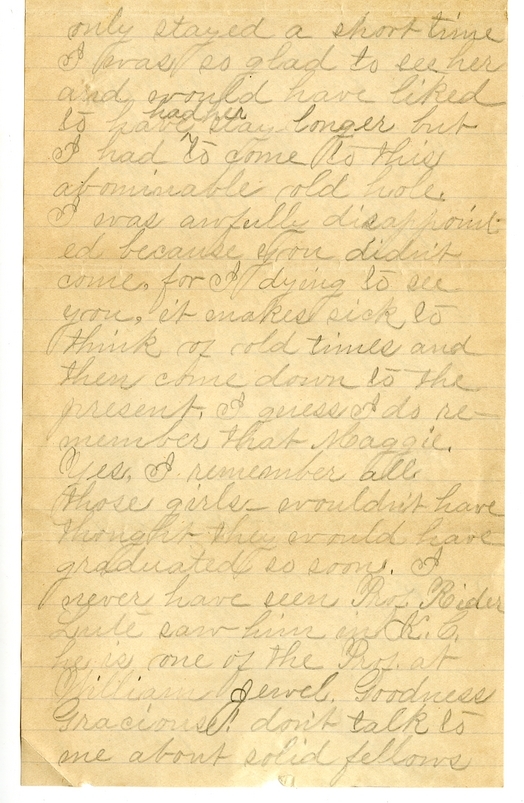 only stayed a short time
I was so glad to see her
and would have liked
had her
to have stay longer but
I had to come to this
abominable old hole.
I was awfully disappoint-
ed because you didn't
come, for I dying to see
you, it makes sick to
think of old times and
then come down to the
present. I guess I do re-
member that Maggie.
Yes, I remember all
those girls - wouldn't have
thought they would have
graduated so soon. I
never have seen Prof. Rider
Lute saw him in K.C.
he is one of the Prof. at
William Jewel. Goodness
Gracious! don't talk to
me about solid fellows